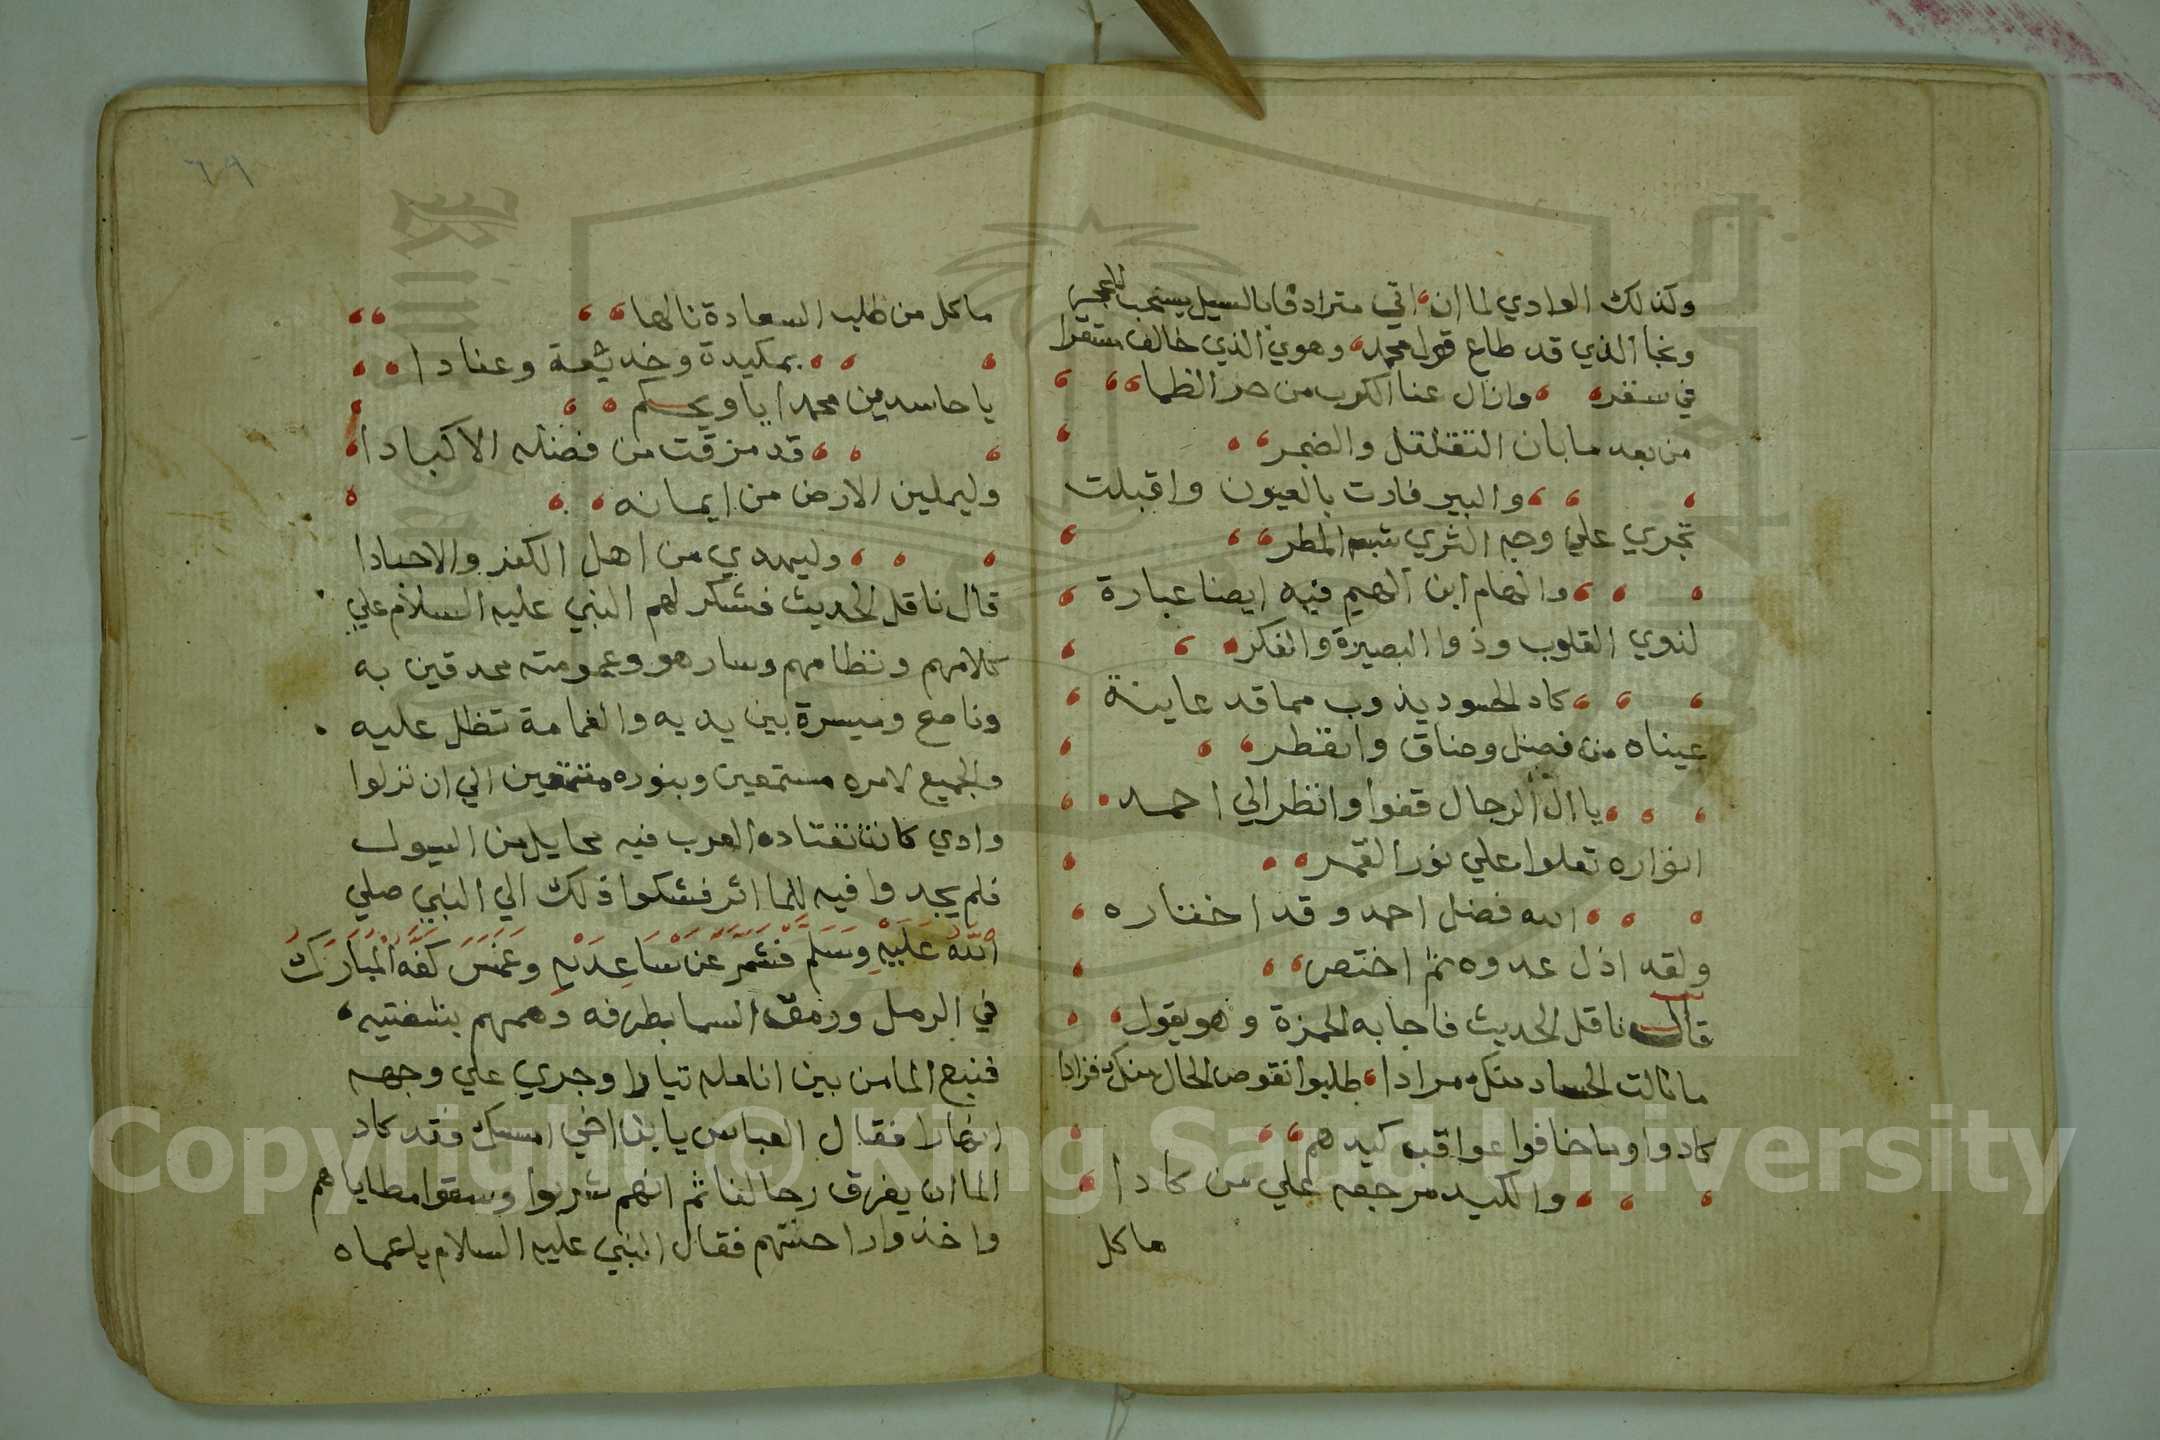 وكذلك الوادي لما ان اتي مترادفا بالسيل يسحب للحجر
ونجا الذي قد طاع قول محمد وهوي الذي خالف مستقرا
في سقر وازال عنا الكرب من حر الظما
من بعد ما بان التقلقل والضجر
والبير فارت بالعيون واقبلت
تجري علي وجه الثري شبه المطر
والهام ابن الهيم فيه ايضا عبارة
لذوي القلوب وذوا البصيرة والفكر
كاد الحسود يذوب مما قد عاينة
عيناه من فضل وضاق وانفطر
يا ال الرجال قفوا وانظر الي احمد
انواره تعلوا علي نور القمر
الله فضل احمد وقد اختاره
ولقد اذل عدوه ثم اختصر
قال ناقل الحديث فاجابه الحمزة وهو يقول
ما نالت الحساد منك مرادا طلبوا نقوص الحال منك فزادا
كادوا وما خافوا عواقب كيدهم
والكيد مرجعه علي من كادا
ما كل
٦٩
ما كل من طلب السعادة نالها
بمكيدة وخديعة وعنادا
يا حاسدين محمدا يا ويحكم
قد مزقت من فضله الاكبادا
وليملين الارض من ايمانه
وليهدي من اهل الكفر والاحبادا
قال ناقل الحديث فشكر لهم النبي عليه السلام علي
كلامهم ونظامهم وسار هو وعمومته محدقين به
وناصح وميسرة بين يديه والغمامة تظل عليه
والجميع لامره مستمعين وبنوره متمتعين الي ان نزلوا
وادي كانت تعتاده العرب فيه مخايل من السيول
فلم يجدوا فيه للما اثر فشكوا ذلك الي النبي صلي
الله عليه وسلم فشمر عن ساعديه وغمس كفه المبارك
في الرمل ورمق السما بطرفه وهمهم بشفتيه
فنبع الما من بين انامله تيارا وجري علي وجهه
انهارا فقال العباس يا بن اخي امسك فقد كاد
الما ان يغرق رحالنا ثم انهم شربوا وسقوا مطاياهم
واخذوا راحتهم فقال النبي عليه السلام يا عماه
Copyright © King Saud University